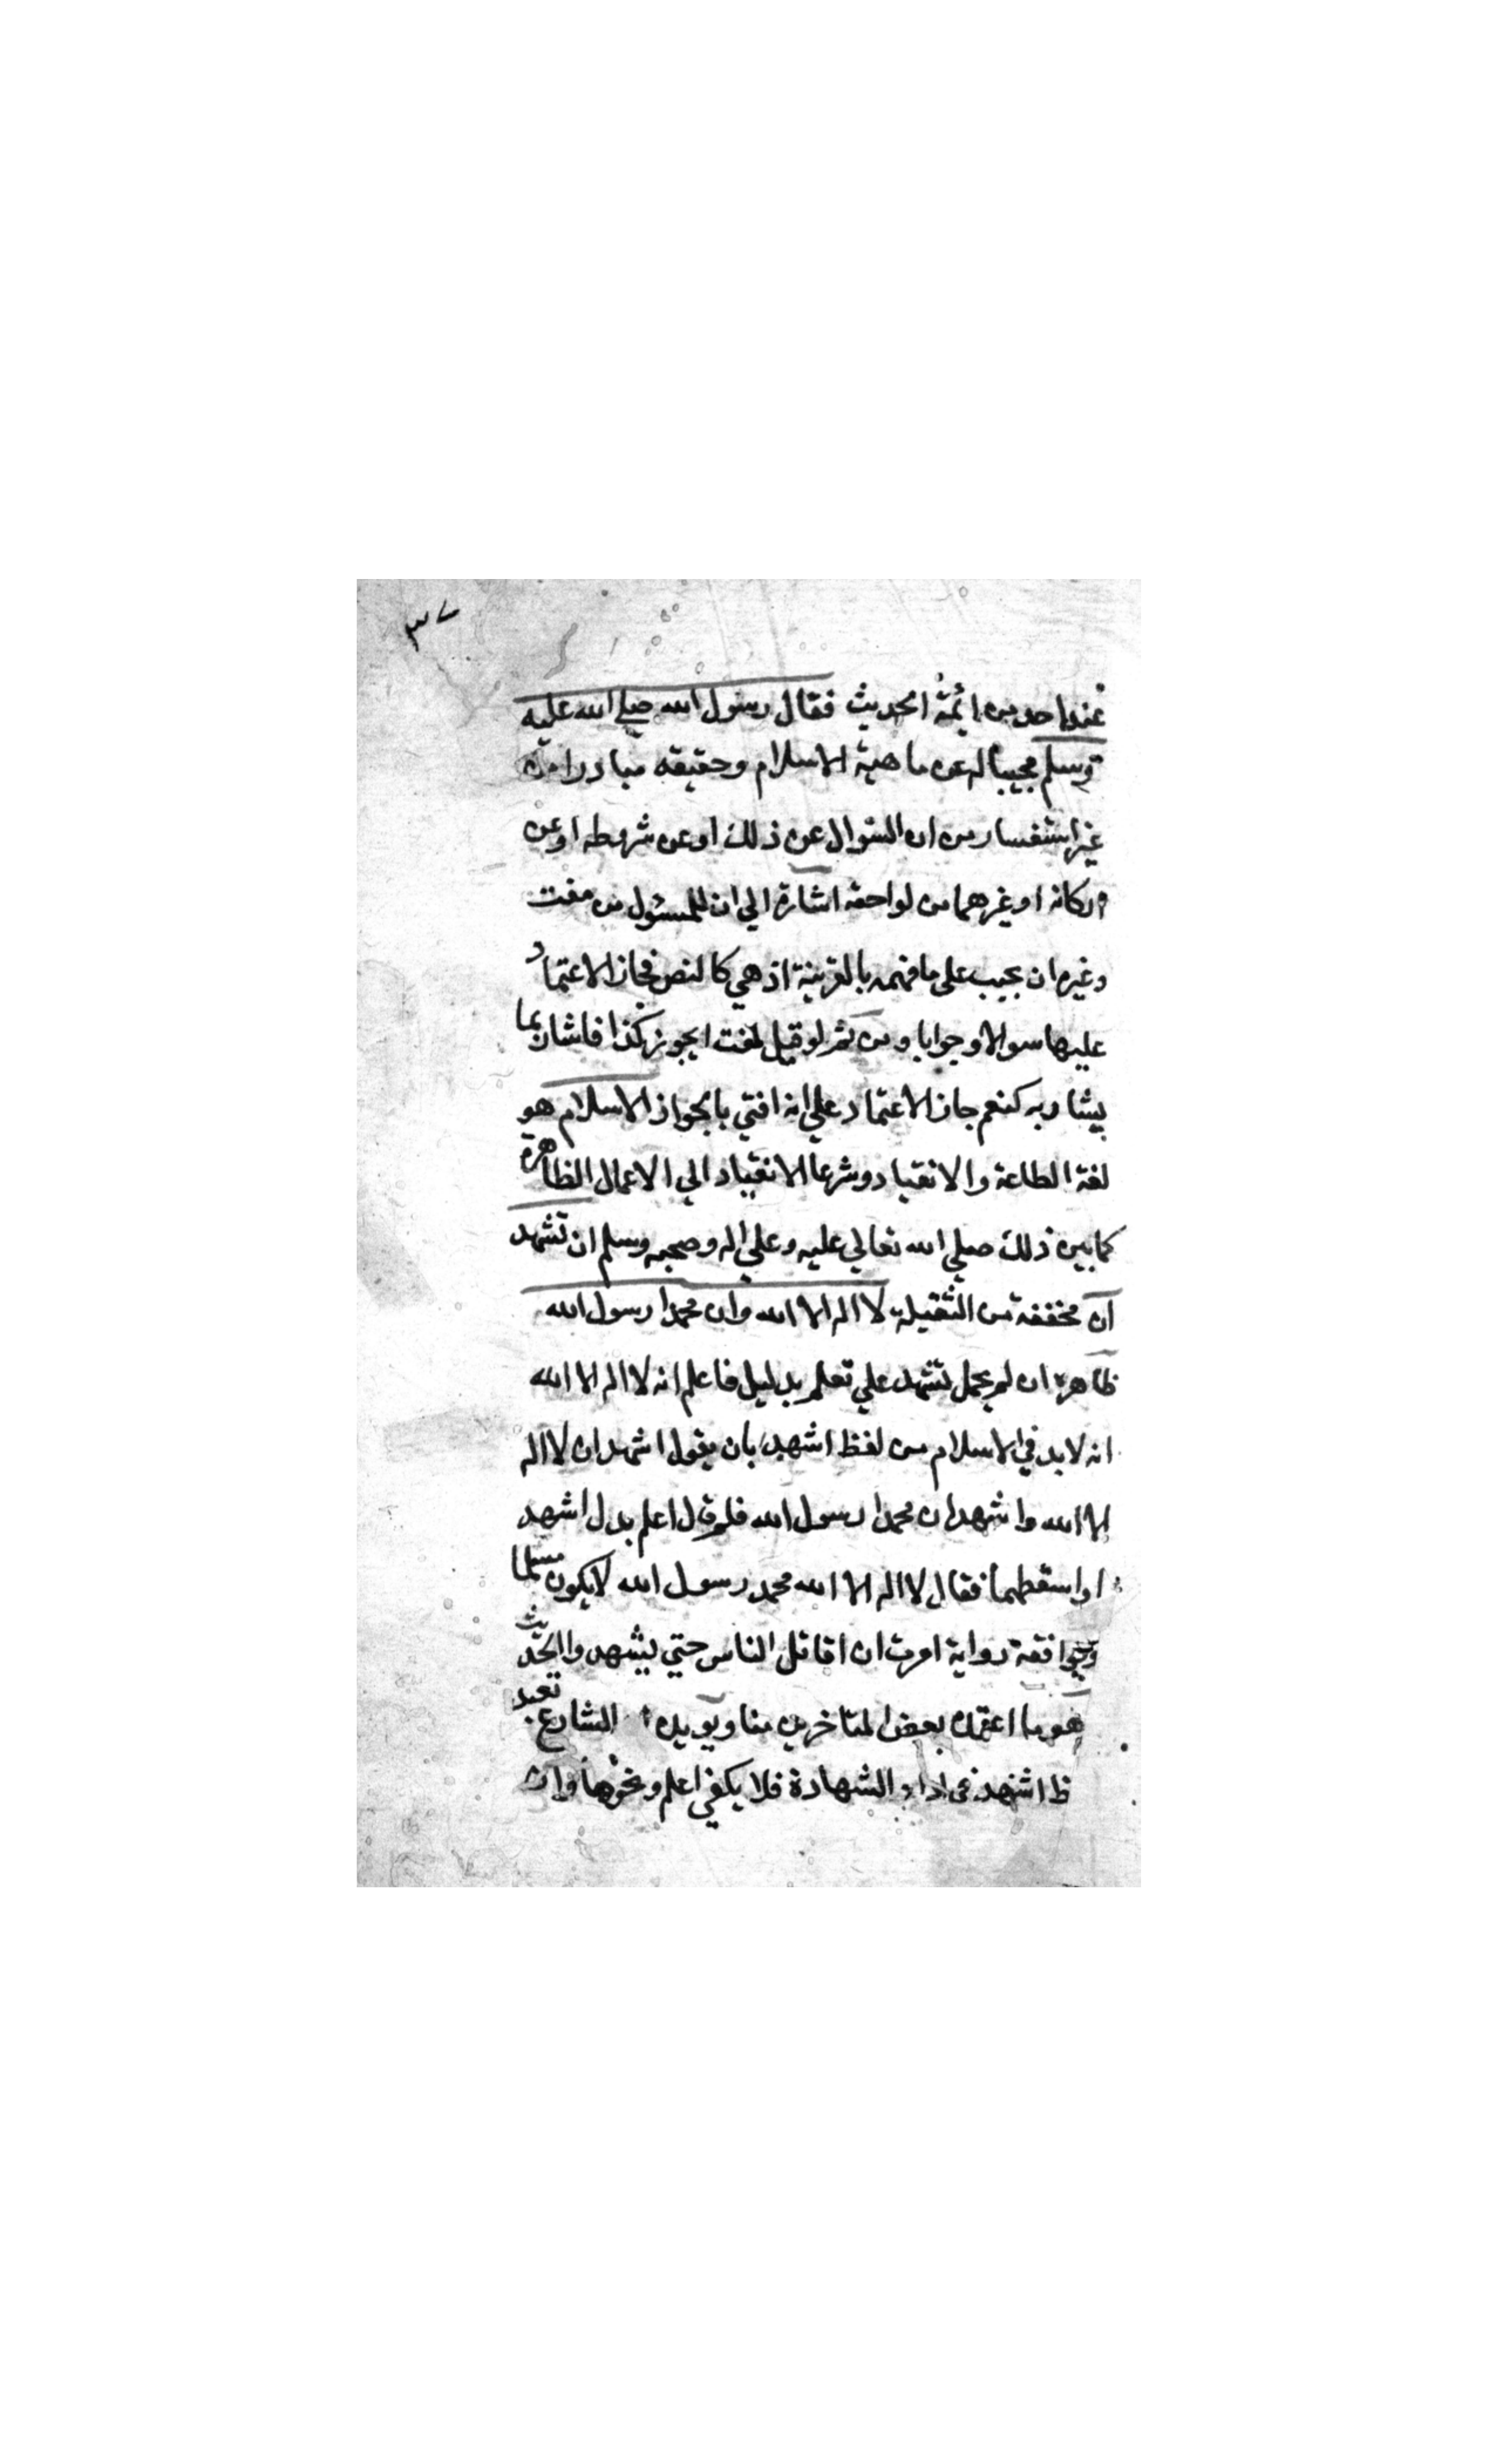 ٣٧
عند احد من ائمة الحديث فقال رسول الله صلي الله عليه
وسلم مجيبا له عن ماهية الاسلام وحقيقه مبادرا من
غير استفسار من ان السوال عن ذلك او عن شروطه او عن
اركانه او غيرهما من لواحقه اشارة الي ان للمسئول من مفت
وغيره ان يجيب علي ما فهمه بالقرينة اذ هي كالنص فجاز الاعتماد
عليها سوالا وجوابا ومن ثم لو قيل لمفت ايجوز كذا فاشار بما
يشار به كنعم جاز الاعتماد علي انه افتي بالجواز الاسلام هو
لغة الطاعة والانقياد وشرعا الانقياد الي الاعمال الظاهرة
كما بين ذلك صلي الله تعالي عليه وعلي اله وصحبه وسلم ان تشهد
ان مخففة من الثقيلة لا اله الا الله وان محمدا رسول الله
ظاهره ان لم يحمل تشهد علي تعلم بدليل فاعلم انه لا اله الا الله
انه لا بد في الاسلام من لفظ اشهد بان يقول اشهد ان لا اله
الا الله واشهد ان محمدا رسول الله فلو قال اعلم بدل اشهد
او اسقطهما فقال لا اله الا الله محمد رسول الله لا يكون مسلما
ويوافقه رواية امرت ان اقاتل الناس حتي يشهدوا الحديث
هو ما اعتمده بعض المتاخرين منا ويويده الشارع تعبد
اشهد في اداء الشهادة فلا يكفي اعلم ونحوها وان